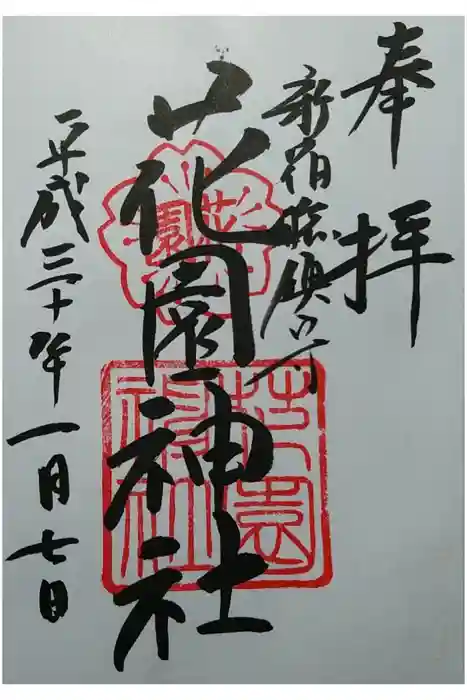 奉拝
新宿総鎮守
花園神社
平成三十年一月七日
花園
花園
神社